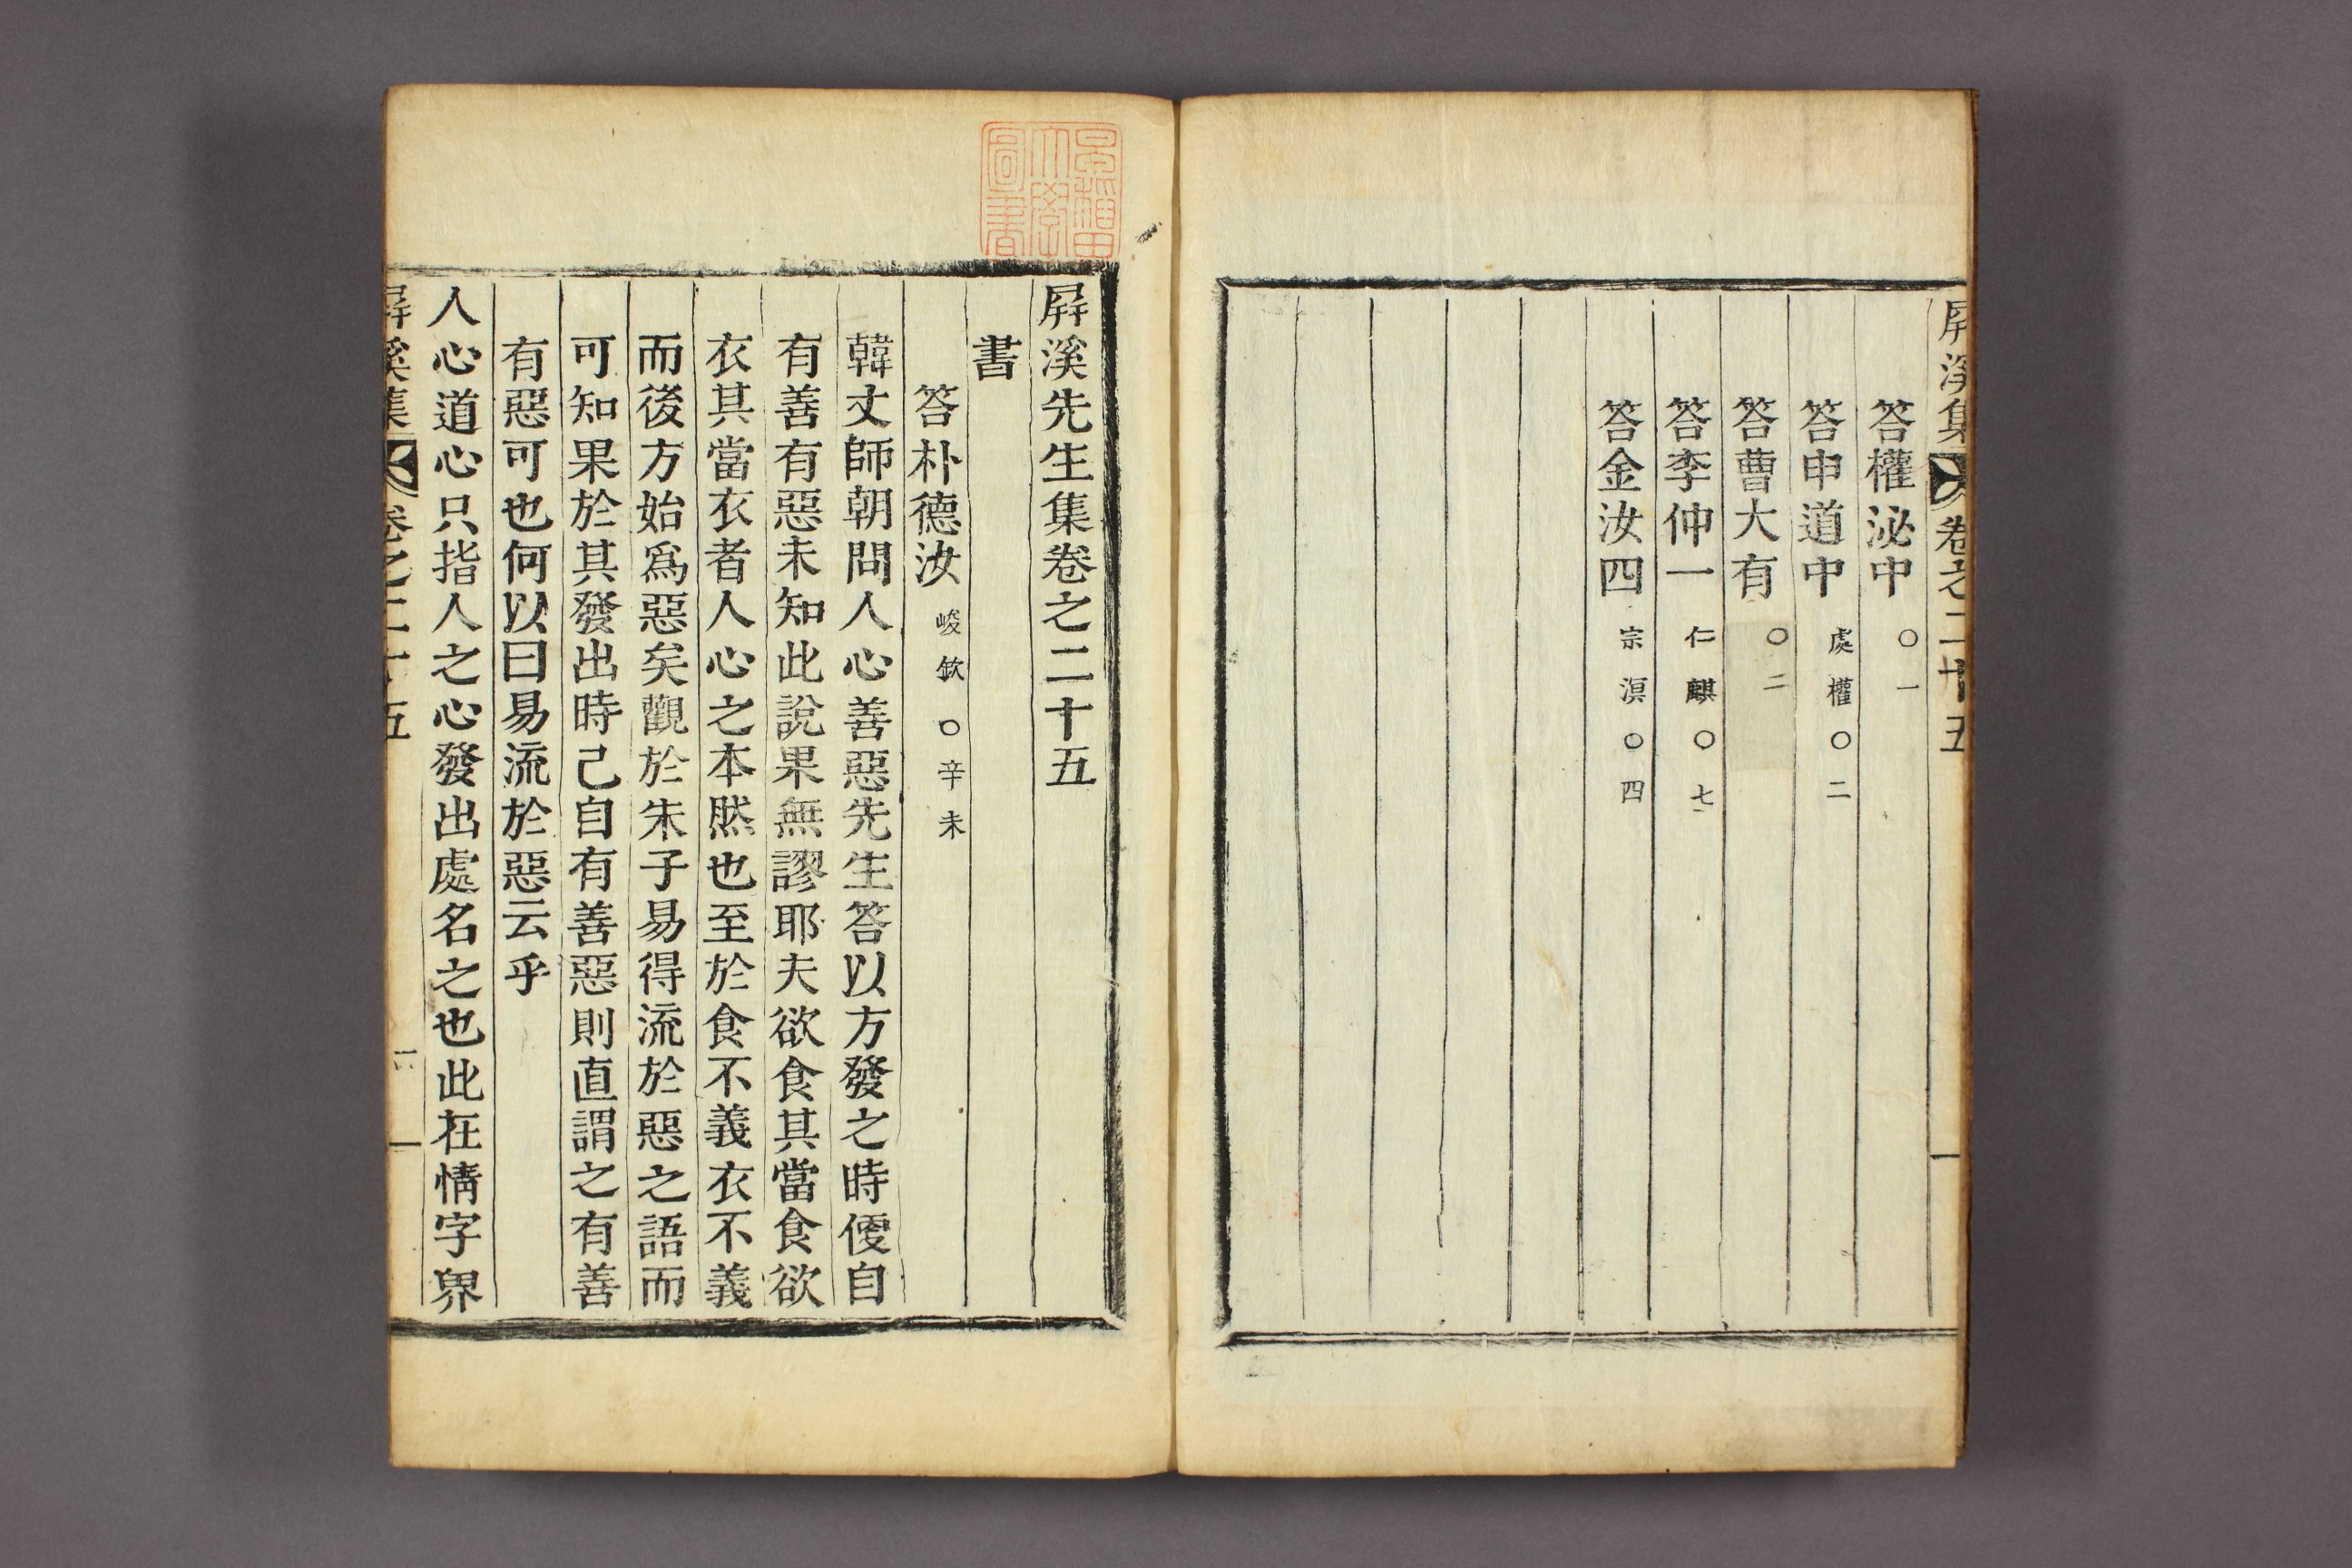 屛溪集 卷之二十五
答權泌中 ○一
答申道中 處權○二
答曹大有 ○二
答李仲一 仁麒○七
答金汝四 宗溟○四
早稻田大學圖書
屛溪先生集卷之二十五
書
答朴德汝 峻欽○辛未
韓丈師朝問人心善惡先生答以方發之時便自
有善有惡未知此說果無謬耶夫欲食其當食欲
衣其當衣者人心之本然也至於食不義衣不義
而後方始爲惡矣觀於朱子易得流於惡之語而
可知果於其發出時已自有善惡則直謂之有善
有惡可也何以曰易流於惡云乎
人心道心只指人之心發出處名之也此在情字界
屛溪集 卷之二十五